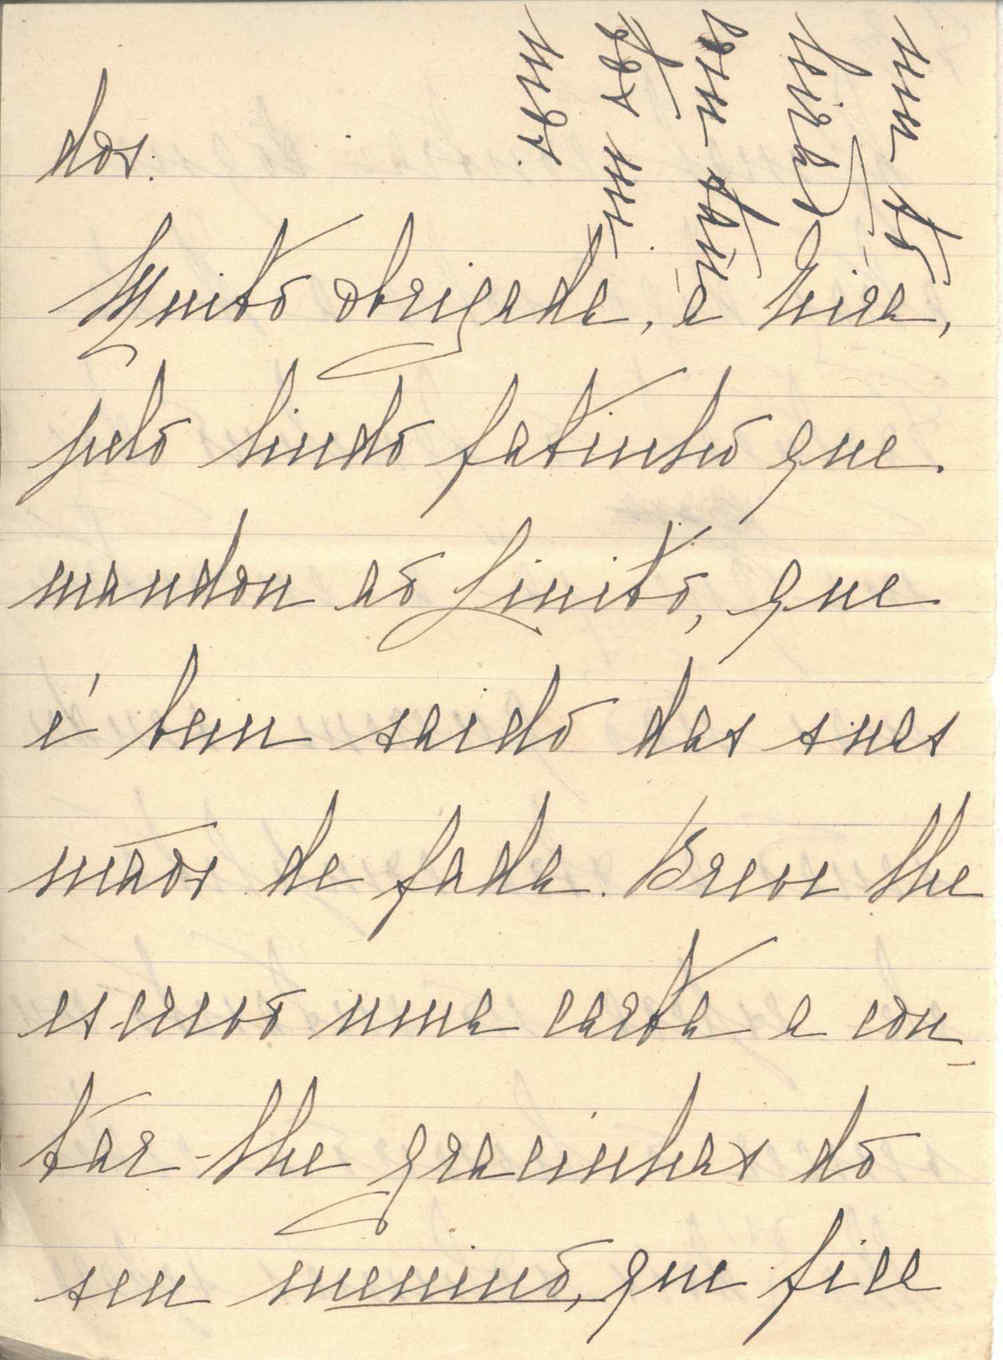 dos.
Muito obrigada, à
pelo lindo fatinho que
mandou ao Linito, que
é bem saido das suas
mãos de fada. Breve lhe
escrevo uma carta a con-
tar-lhe gracinhas do
seu menino, que fica
com tan
tos mi-
mos.